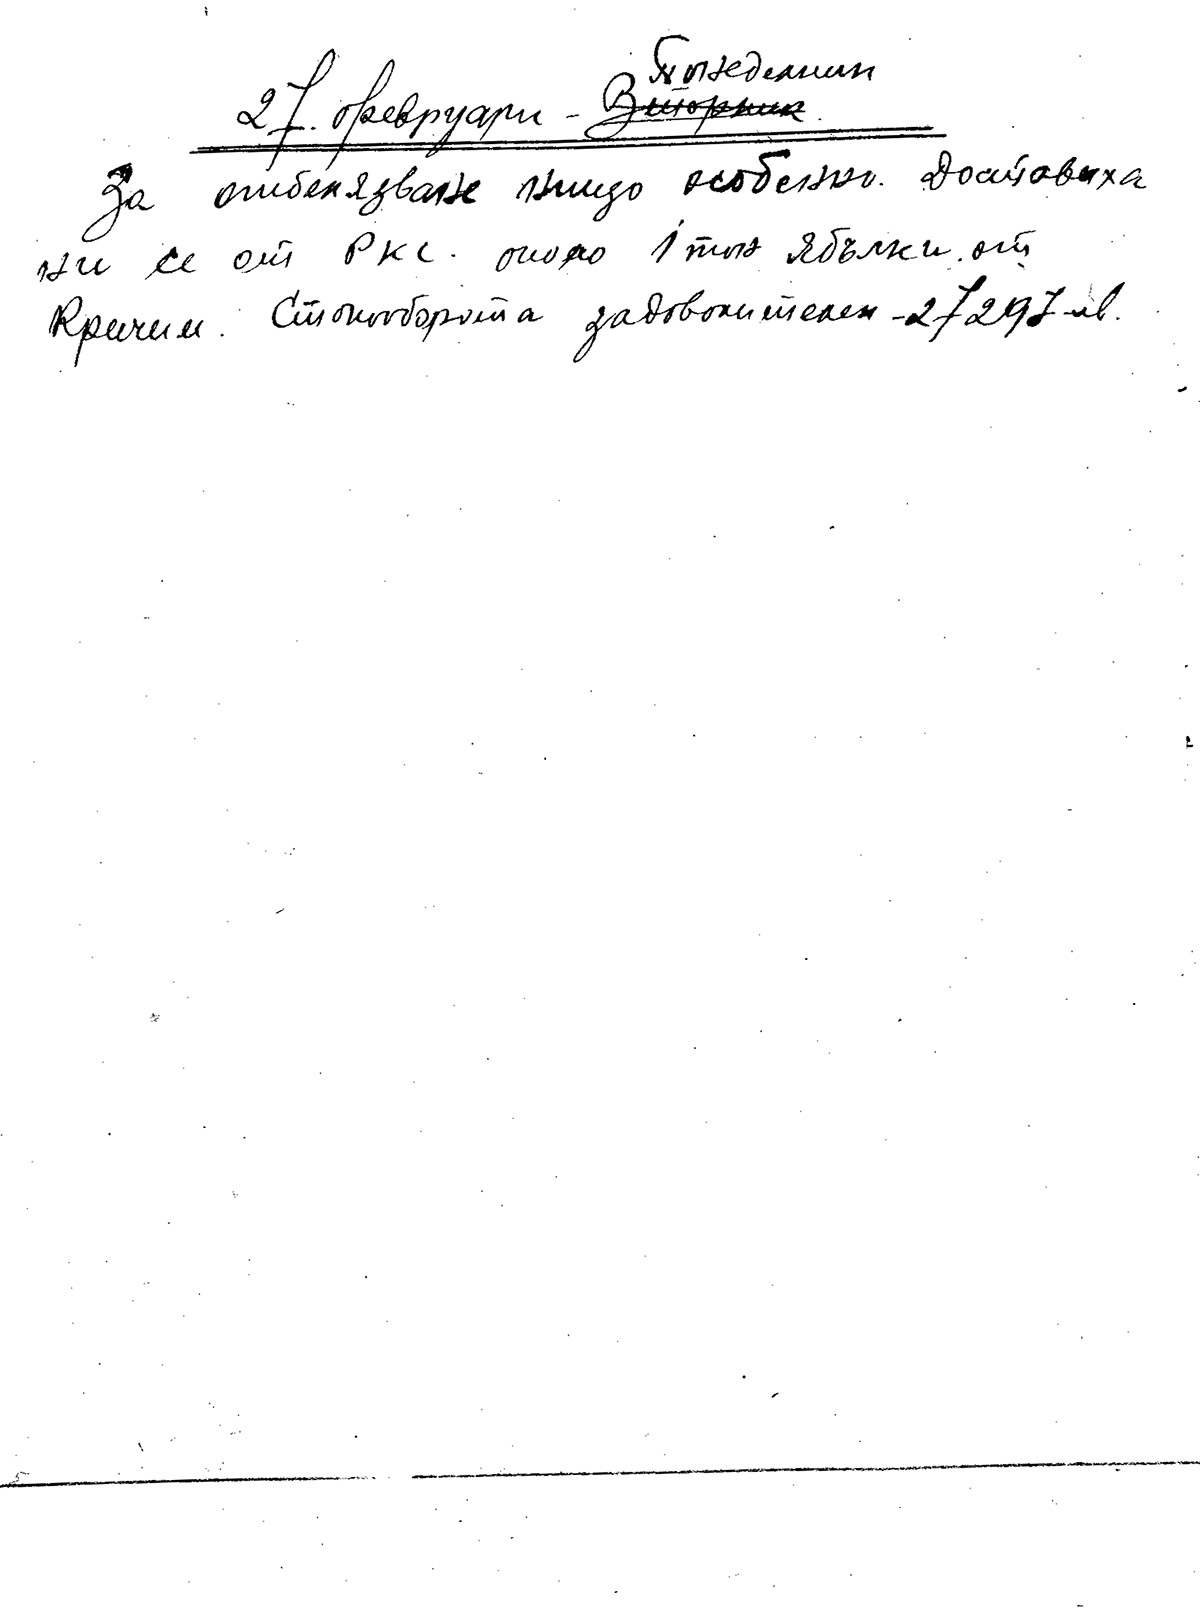 27. февруари - Понеделник
Вторник
За отбелязване нищо особенно. Доставиха
ни се от РКС. около 1 тон ябълки от
Кричим. Стокооборота задоволителен - 27297 лв.